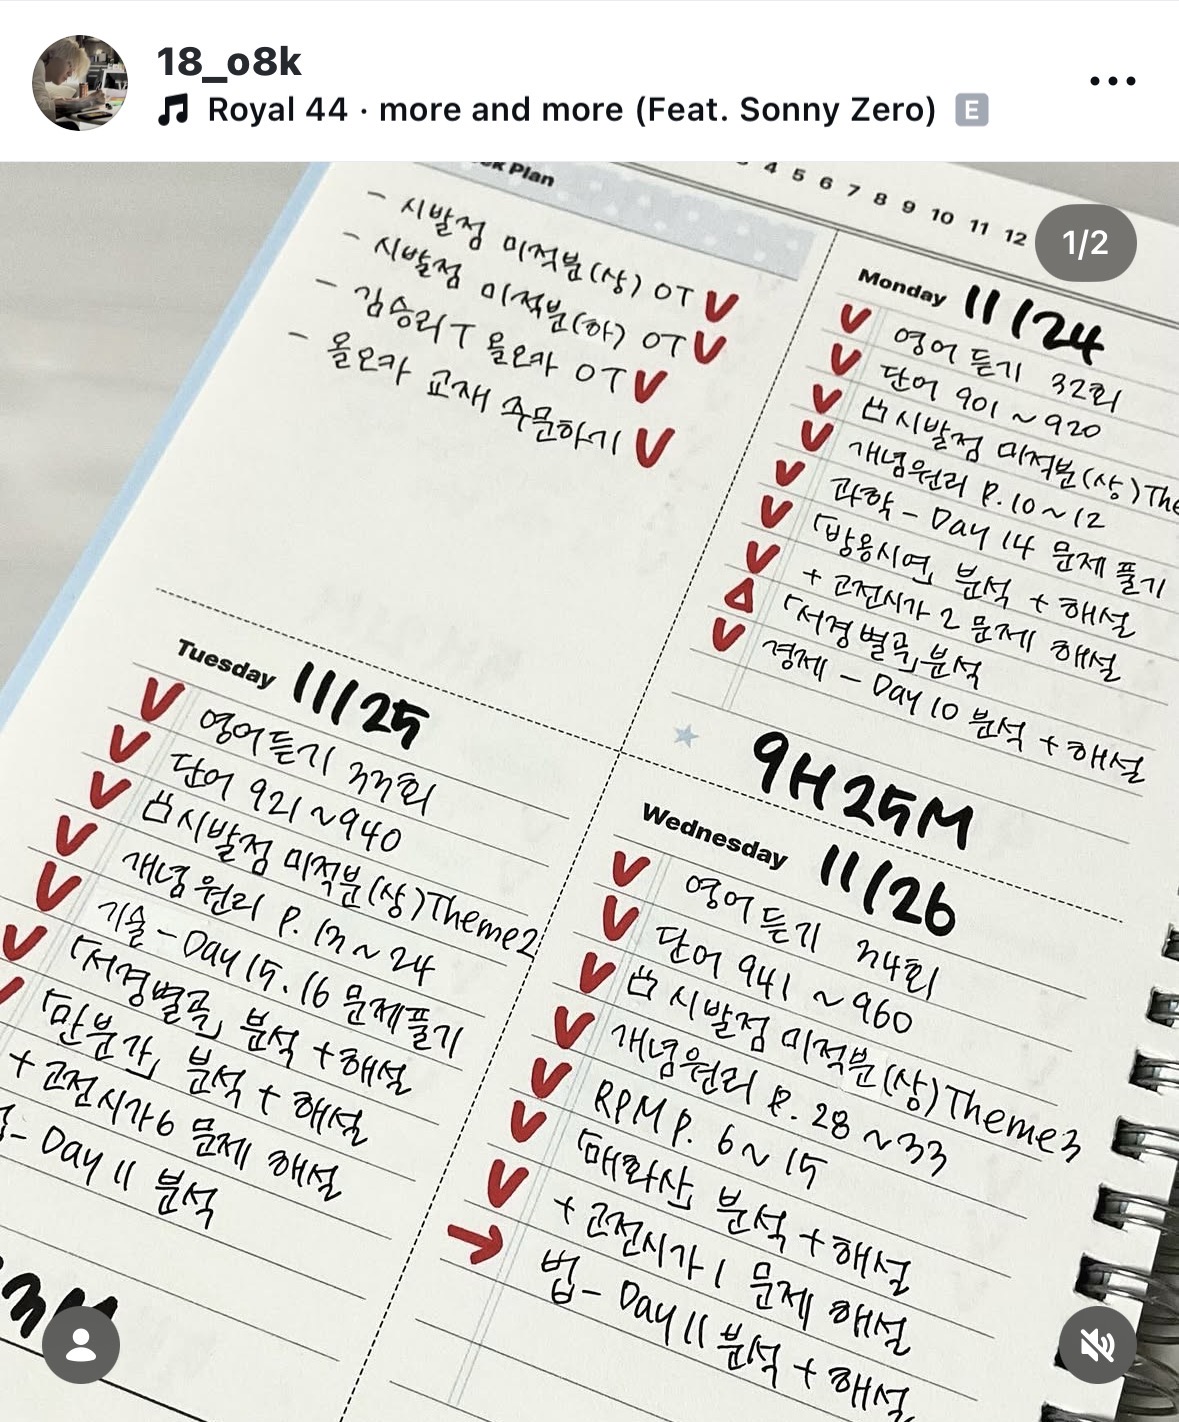 18_o8k
Royal 44 · more and more (Feat. Sonny Zero) E
1/2
k Plan
4 5 6 7 8 9 10 11 12
- 시발점 미적분(상) OT V
- 시발점 미적분(하) OT V
- 김승리T 올오카 OT V
- 올오카 교재 주문하기 V
Monday 11/24
V 영어 듣기 32회
V 단어 901 ~ 920
V 凸 시발점 미적분(상) The
V 개념원리 P. 10 ~ 12
V 과학 - Day 14 문제 풀기
V 「방옹시여」 분석 + 해설
V + 고전시가 2 문제 해설
△ 「서경별곡」 분석
V 경제 - Day 10 분석 + 해설
9H 25M
Tuesday 11/25
V 영어듣기 33회
V 단어 921 ~ 940
V 凸 시발점 미적분(상) Theme2
V 개념원리 P. 13 ~ 24
V 기술 - Day 15. 16 문제풀기
V 「서경별곡」 분석 + 해설
「만분가」 분석 + 해설
+ 고전시가 6 문제 해설
- Day 11 분석
3M
Wednesday 11/26
V 영어듣기 34회
V 단어 941 ~ 960
V 凸 시발점 미적분(상) Theme3
V 개념원리 P. 28 ~ 33
V RPM P. 6 ~ 15
V 「매화사」 분석 + 해설
V + 고전시가 1 문제 해설
→ 법 - Day 11 분석 + 해설